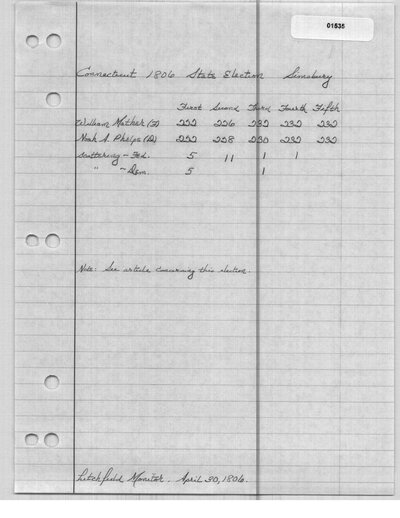 01535
Connecticut 1806 State Election Simsbury
First Second Third Fourth Fifth
William Mather (F) 222 226 232 232 232
Noah A. Phelps (D) 222 228 230 232 232
Scattering - Fed. 5 11 1 1
" - Dem. 5 1
Note: See article concerning this election.
Litchfield Monitor. April 30, 1806.